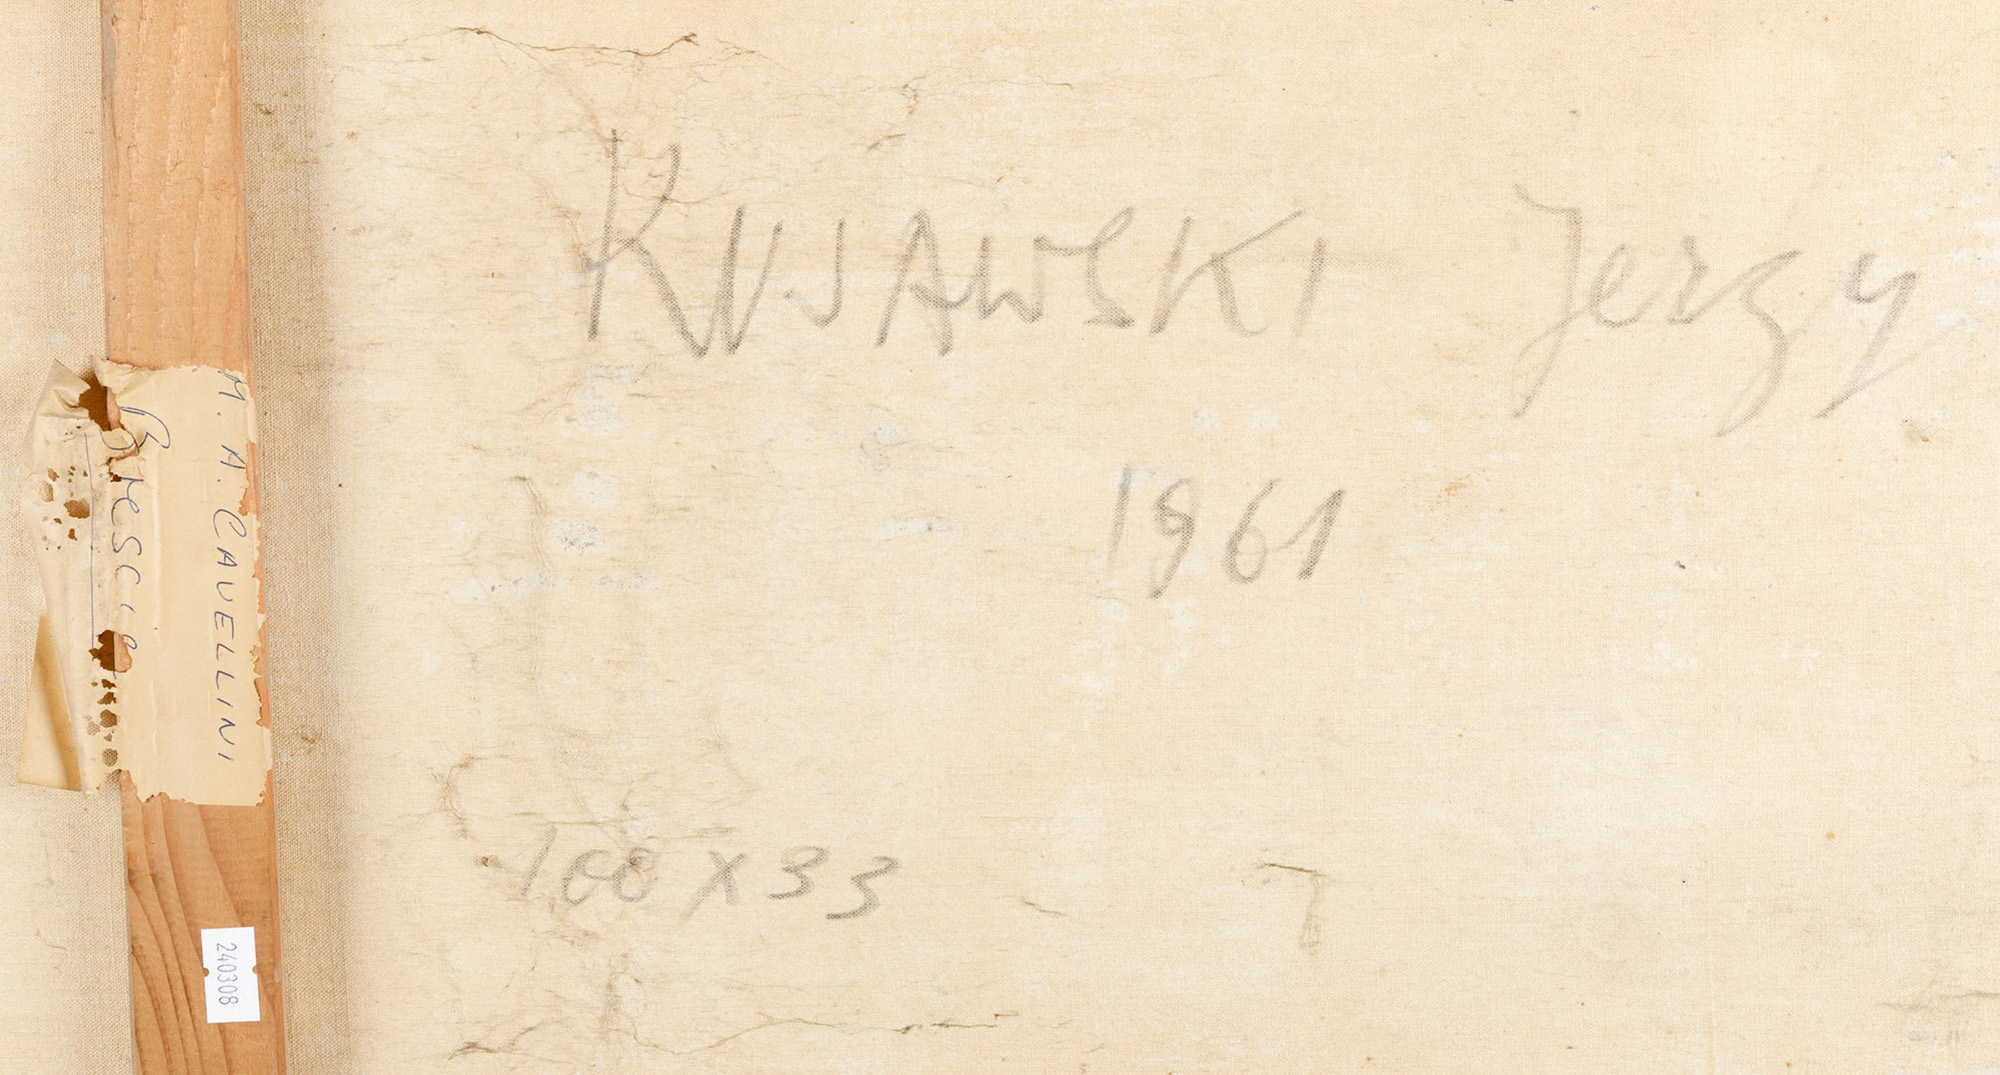 KUJAWSKI Jerzy
1961
100 x 33
M. A. CAVELLINI
Brescia
240308